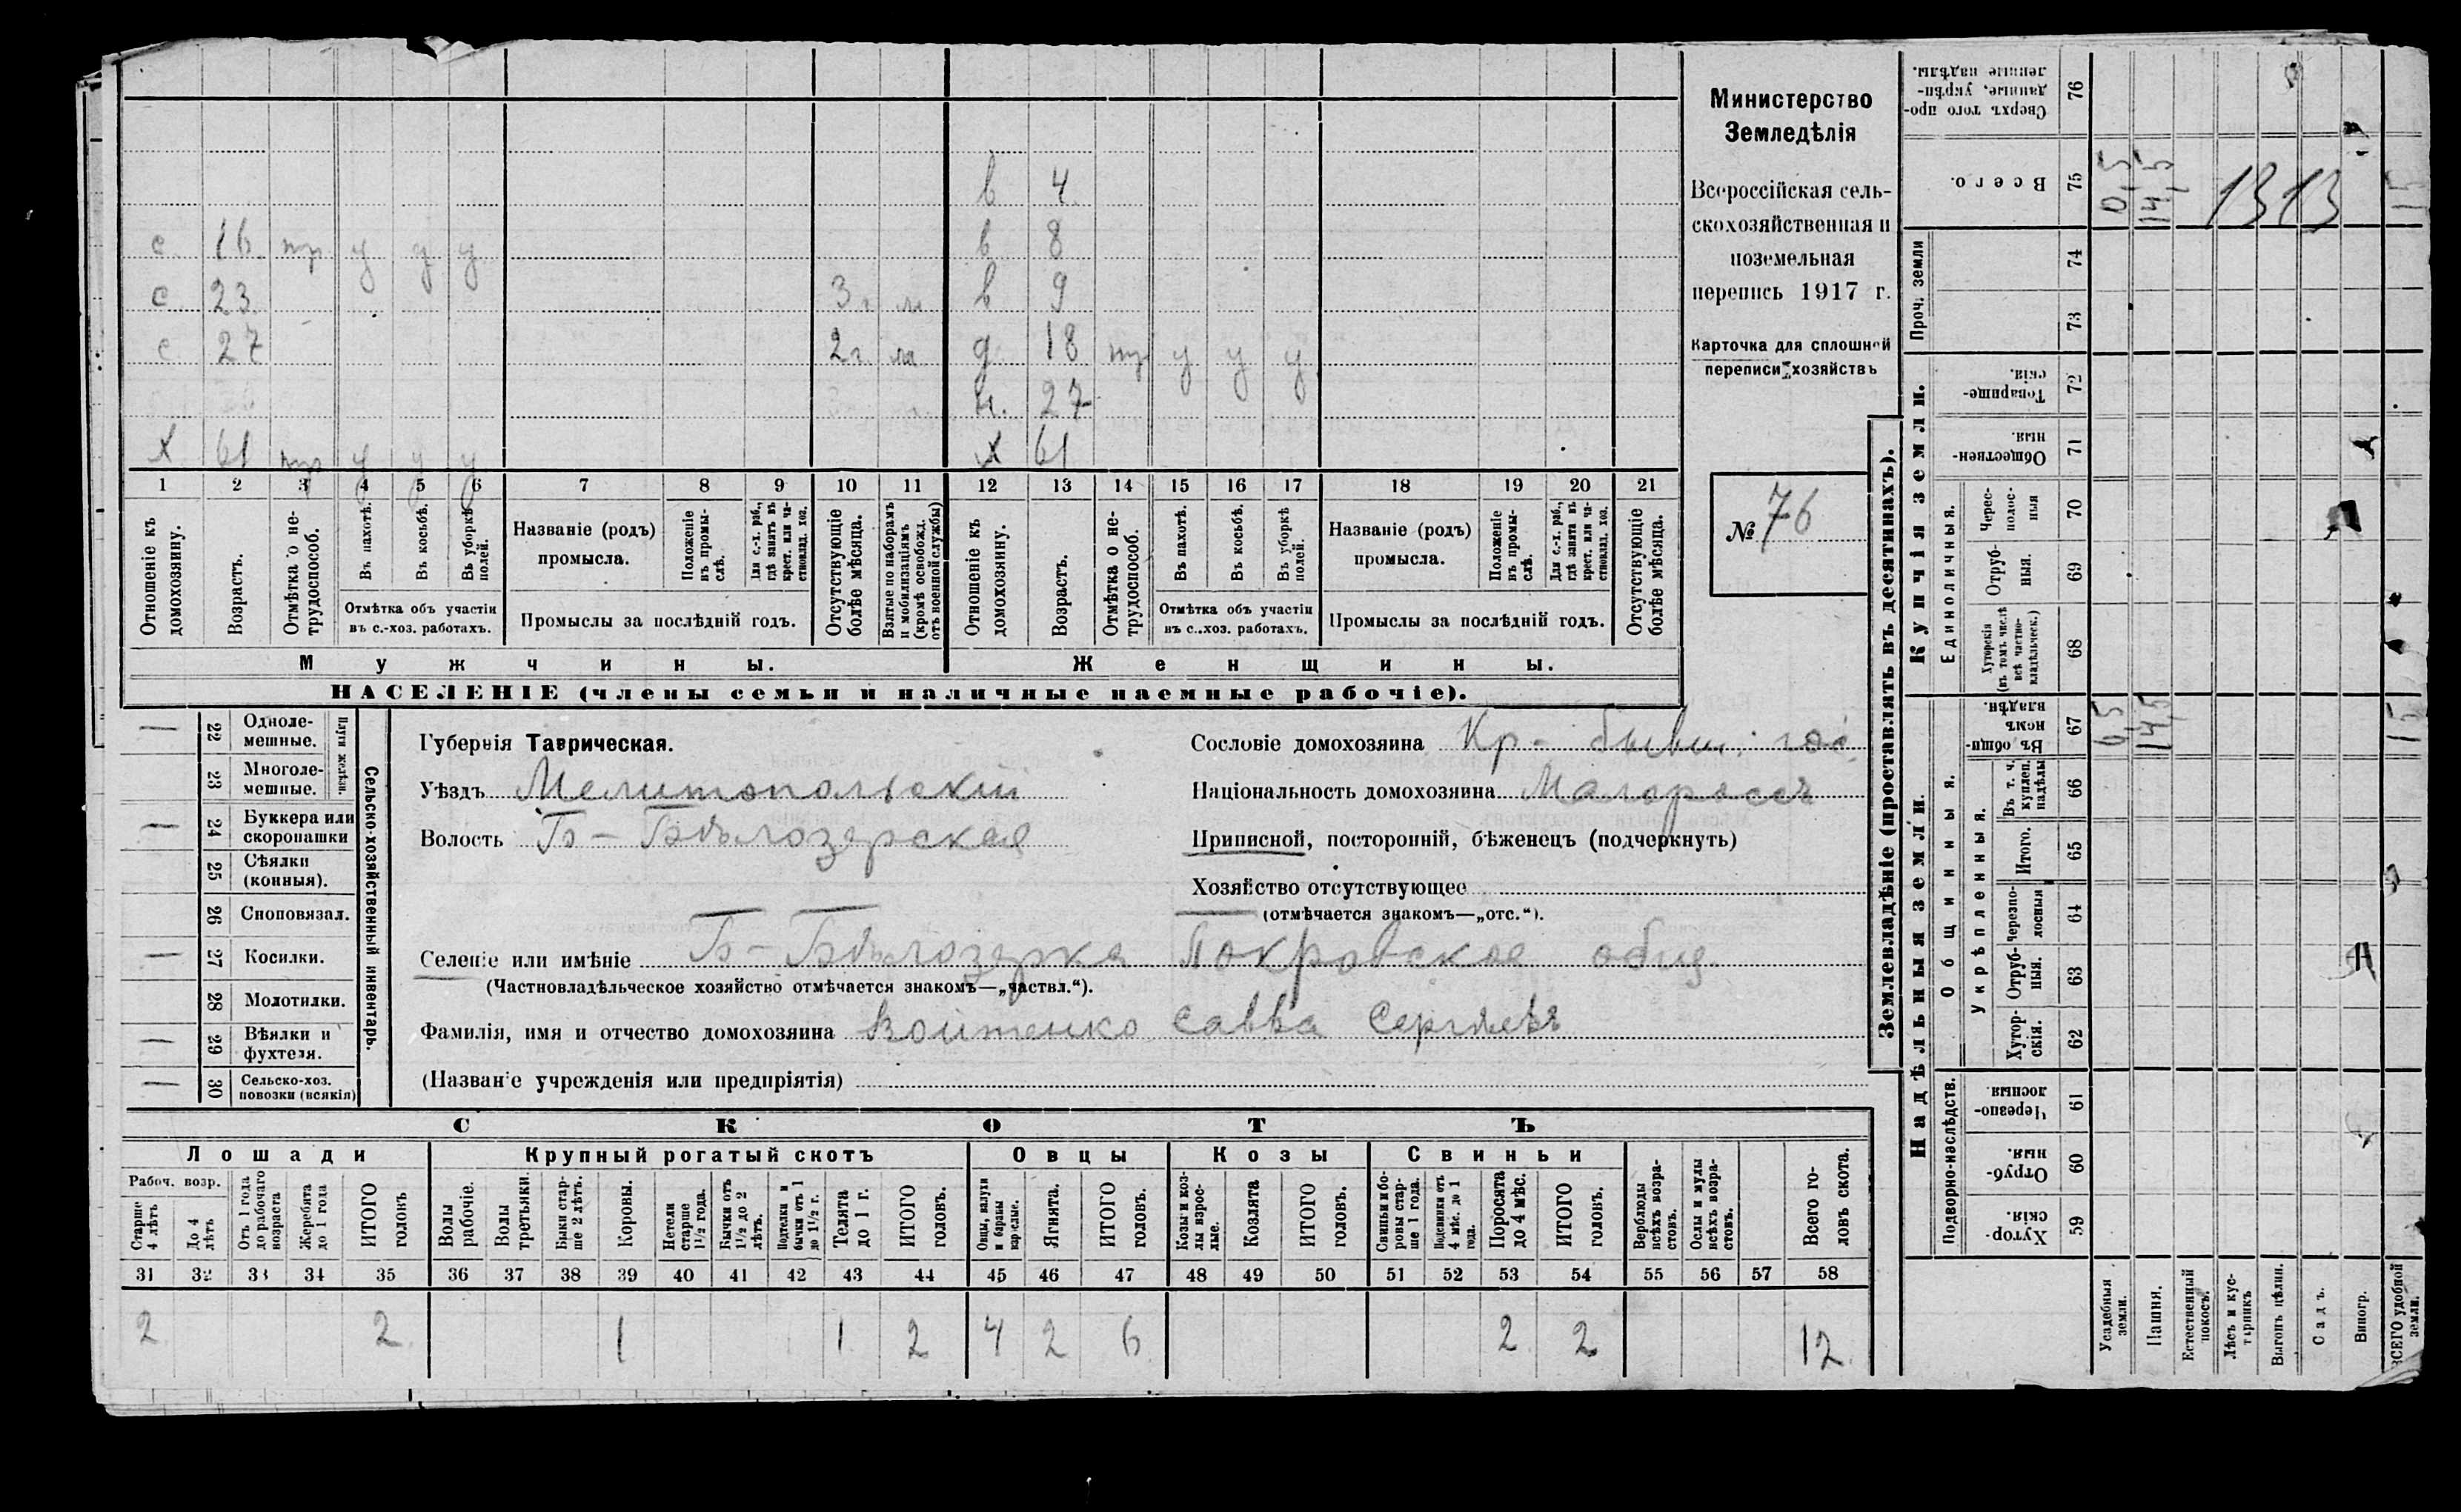 в 4
с. 16. тр у у у в. 8
с. 23. 3 г. м. в 9
с 27 2 г. м д. 18 тр у у у
н. 27
х 61 тр у у у х 61
1 2 3 4 5 6 7 8 9 10 11 12 13 14 15 16 17 18 19 20 21
Отношеніе къ домохозяину.
Возрастъ.
Отмѣтка о не-трудоспособ.
Въ пахотѣ.
Въ косьбѣ.
Въ уборкѣ полей.
Отмѣтка объ участіи
въ с.-хоз. работахъ.
Названіе (родъ)
промысла.
Положеніе въ промы-слѣ.
Для с.-х. раб., гдѣ занятъ въ крест. или ча-стновлад. хоз.
Промыслы за послѣдній годъ.
Отсутствующіе болѣе мѣсяца.
Взятые по наборамъ и мобилизаціямъ (кромѣ освобожд. отъ военной службы)
Отношеніе къ домохозяину.
Возрастъ.
Отмѣтка о не-трудоспособ.
Въ пахотѣ.
Въ косьбѣ.
Въ уборкѣ полей.
Отмѣтка объ участіи
въ с.-хоз. работахъ.
Названіе (родъ)
промысла.
Положеніе въ промы-слѣ.
Для с.-х. раб., гдѣ занята въ крест. или ча-стновлад. хоз.
Промыслы за послѣдній годъ.
Отсутствующіе болѣе мѣсяца.
Мужчины. Женщины.
НАСЕЛЕНІЕ (члены семьи и наличные наемные рабочіе).
Министерство
Земледѣлія
Всероссійская сель-
скохозяйственная и
поземельная
перепись 1917 г.
Карточка для сплошной
переписи хозяйствъ
№ 76
— 22 Одноле-мешные.
23 Многоле-мешные.
Плуги желѣзн.
— 24 Буккера или скоропашки
25 Сѣялки (конныя).
26 Сноповязал.
— 27 Косилки.
28 Молотилки.
— 29 Вѣялки и фухтеля.
— 30 Сельско-хоз. повозки (всякія)
Сельско-хозяйственный инвентарь.
Губернія Таврическая.
Уѣздъ Мелитопольскій
Волость Б-Бѣлозерская
Сословіе домохозяина Кр- бывш. гос.
Національность домохозяина Малороссъ
Приписной, посторонній, бѣженецъ (подчеркнуть)
Хозяйство отсутствующее
(отмѣчается знакомъ—„отс.“).
Селеніе или имѣніе Б-Бѣлозерка Покровское общ.
(Частновладѣльческое хозяйство отмѣчается знакомъ—„частвл.“).
Фамилія, имя и отчество домохозяина Войтенко Савва Сергѣевъ
(Названіе учрежденія или предпріятія)
СКОТЪ
Лошади Крупный рогатый скотъ Овцы Козы Свиньи
Рабоч. возр.
Старше 4 лѣтъ
До 4 лѣтъ
Отъ 1 года до рабочаго возраста
Жеребята до 1 года
ИТОГО головъ
Волы рабочіе.
Волы третьяки.
Быки стар-ше 2 лѣтъ.
Коровы.
Нетели старше 1½ года.
Бычки отъ 1½ до 2 лѣтъ.
Подтелки и бычки отъ 1 до 1½ г.
Телята до 1 г.
ИТОГО головъ.
Овцы, валухи и бараны взрослые.
Ягнята.
ИТОГО головъ.
Козы и коз-лы взрос-лые.
Козлята
ИТОГО головъ.
Свиньи и бо-ровы стар-ше 1 года.
Подсвинки отъ 4 мѣс. до 1 года.
Поросята до 4 мѣс.
ИТОГО головъ.
Верблюды всѣхъ возра-стовъ.
Ослы и мулы всѣхъ возра-стовъ.
Всего го-ловъ скота.
31 32 33 34 35 36 37 38 39 40 41 42 43 44 45 46 47 48 49 50 51 52 53 54 55 56 57 58
2 2 1 1 2 4 2 6 2 2 12
Землевладѣніе (проставлять въ десятинахъ).
Надѣльныя земли.
Купчія земли.
Проч. земли
Подворно-наслѣдств.
Общинныя.
Укрѣпленныя.
Единоличныя.
Сверхъ того про-данные, укрѣп-ленные надѣлы. 76
Всего. 75 0,5 14,5 13 13 15
74
73
Товарище-скія. 72
Обществен-ныя. 71
Черес-полос-ныя 70
Отруб-ныя. 69
Хуторскія (въ томъ числѣ всѣ частно-владѣльческ.) 68
Въ общин-номъ владѣн. 67 0,5 14,5 15
Въ т. ч. куплен. надѣлы 66
Итого. 65
Черезпо-лосныя 64
Отруб-ныя. 63
Хутор-скія. 62
Черезпо-лосныя 61
Отруб-ныя. 60
Хутор-скія. 59
Усадебныя земли.
Пашня.
Естественный покосъ.
Лѣсъ и кус-тарникъ
Выгонъ цѣлин.
Садъ.
Виногр.
ВСЕГО удобной земли.